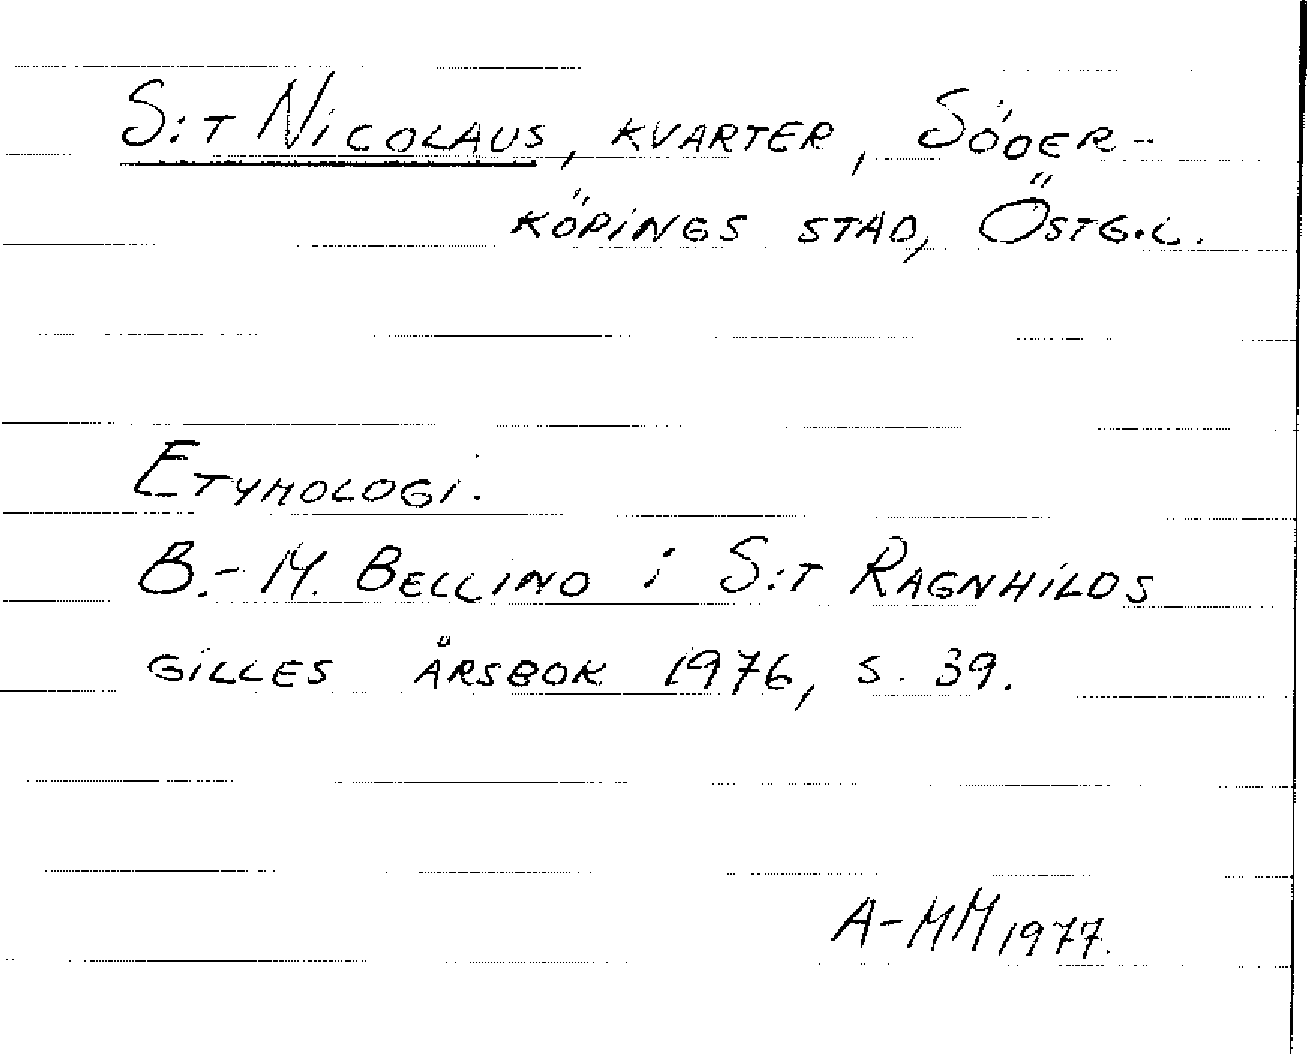 S:t Nicolaus, kvarter, Söder-
köpings stad, Östg.l.
Etymologi.
B.-M. Bellino i S:t Ragnhilds
gilles årsbok 1976, s. 39.
A-MM 1977.